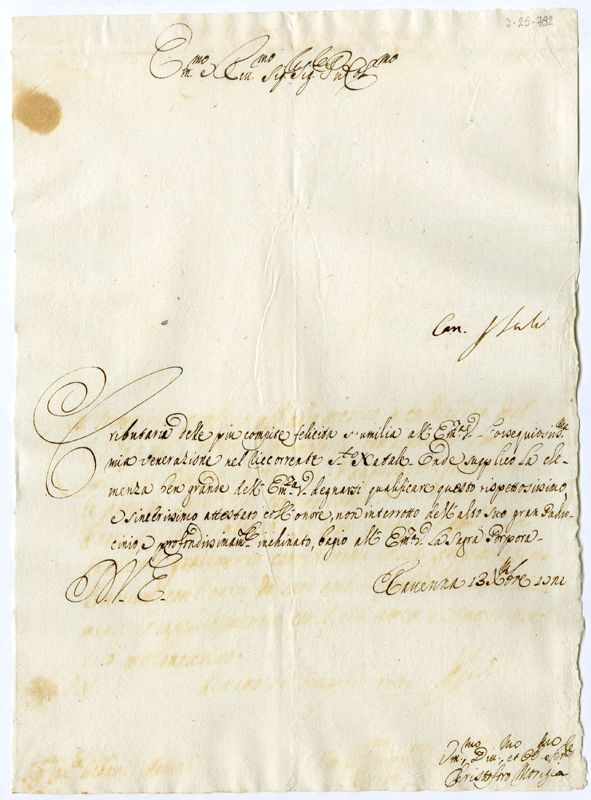 3-25-782
Em.mo e Reu.mo Sig.r Sig.r Pron Col.mo
Can.
Tributaria delle più compite felicità s'umilia all'Em.za V.ra l'ossequiosiss.ma
mia venerazione nel ricorrente S.to Natale. Onde supplico la cle-
menza ben grande dell'Em.za V.ra degnarsi qualificare questo rispettosissimo,
e sincerissimo attestato coll'onore, non interrotto dell'alto suo gran Padro-
cinio, e profondissimam.te inchinato, bagio all'Em.za V.ra la Sagra Porpora.
D. V. E.
Ravenna 13 Xbre
Um.mo Diu.mo et Obb.mo Ser.re
Cristoforo Morigia